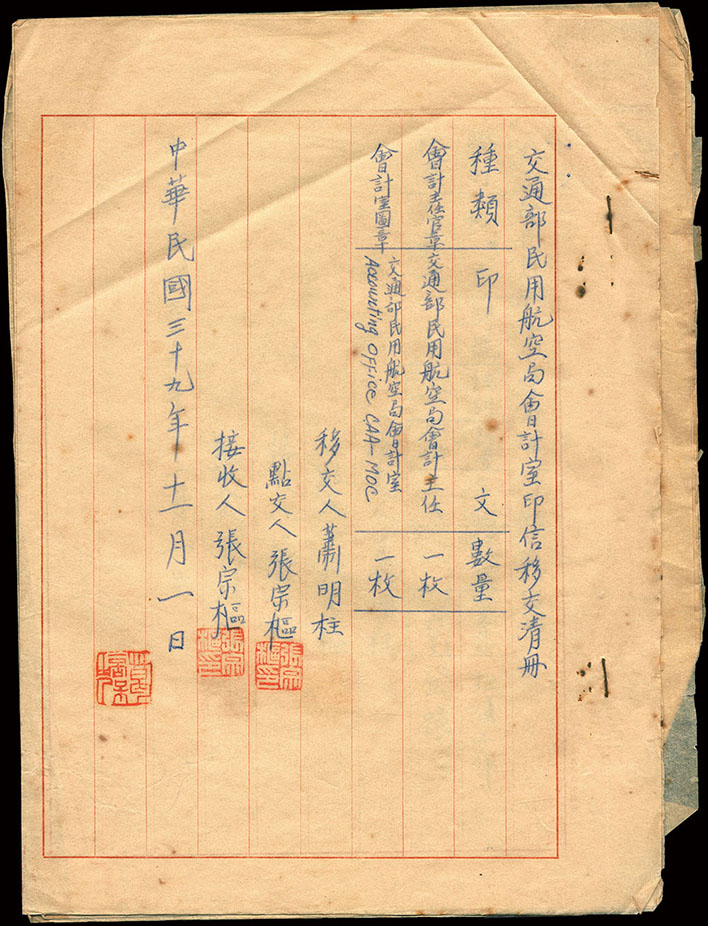 交通部民用航空局會計室印信移交清冊
種類 印文 數量
會計主任官章 交通部民用航空局會計主任 一枚
會計室圖章 交通部民用航空局會計室 Accounting Office CAA-MOC 一枚
移交人 蕭明柱
點交人 張宗樞
張宗樞印
接收人 張宗樞
張宗樞印
中華民國三十九年十一月一日